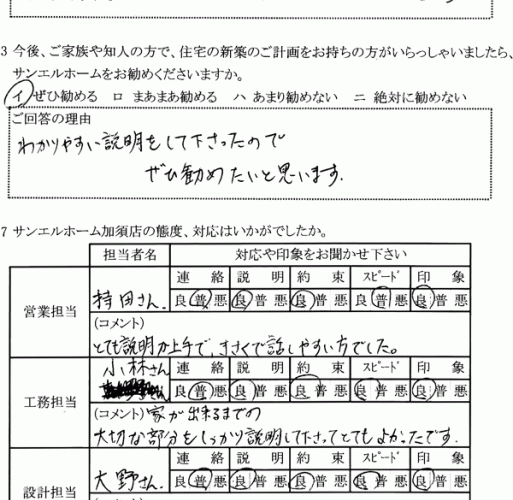 3 今後、ご家族や知人の方で、住宅の新築のご計画をお持ちの方がいらっしゃいましたら、
サンエルホームをお勧めくださいますか。
イ ぜひ勧める ロ まあまあ勧める ハ あまり勧めない ニ 絶対に勧めない
ご回答の理由
わかりやすい説明をして下さったので
ぜひ勧めたいと思います。
7 サンエルホーム加須店の態度、対応はいかがでしたか。
担当者名 対応や印象をお聞かせ下さい
営業担当 持田さん。 連絡 説明 約束 スピード 印象
良 普 悪 良 普 悪 良 普 悪 良 普 悪 良 普 悪
(コメント)
とても説明が上手で、きさくで話しやすい方でした。
工務担当 小林さん 連絡 説明 約束 スピード 印象
良 普 悪 良 普 悪 良 普 悪 良 普 悪 良 普 悪
(コメント) 家が出来るまでの
大切な部分をしっかり説明して下さってとてもよかったです.
設計担当 大野さん. 連絡 説明 約束 スピード 印象
良 普 悪 良 普 悪 良 普 悪 良 普 悪 良 普 悪